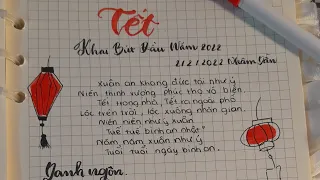 Tết
Khai Bút Đầu Năm 2022
21.2.1.2022 Nhâm Dần
Xuân an khang đức tài như ý
Niên thịnh vượng phúc thọ vô biên.
Tết trong nhà, Tết ra ngoài phố
Lộc trên trời, lộc xuống nhân gian.
Niên niên như ý xuân
Tuế tuế bình an nhật
Năm năm xuân như ý
Tuổi tuổi ngày bình an.
Danh ngôn.